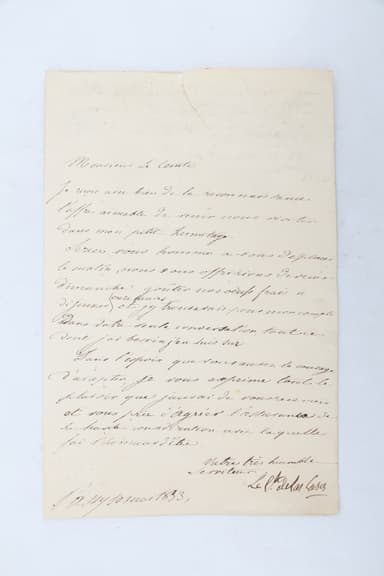 Monsieur Le Comte
Je reçois avec bien de la reconnaissance
l'offre aimable de venir nous visiter
dans mon petit hermitage.
vous homme à vous déplacer
le matin, nous vous offririons de venir
dimanche goûter nos œufs frais à
déjeuner, j'y trouverais pour mon compte
dans votre seule conversation tout ce
dont j'ai besoin, j'en suis sûr
Dans l'espoir que vous aurez le courage
d'accepter, je vous exprime tout le
plaisir que j'aurais de vous recevoir
et vous prie d'agréer l'assurance de
la haute considération avec laquelle
j'ai l'honneur d'être
Votre très humble
serviteur
Le Cte de Las Cases
Passy 10 mai 1833